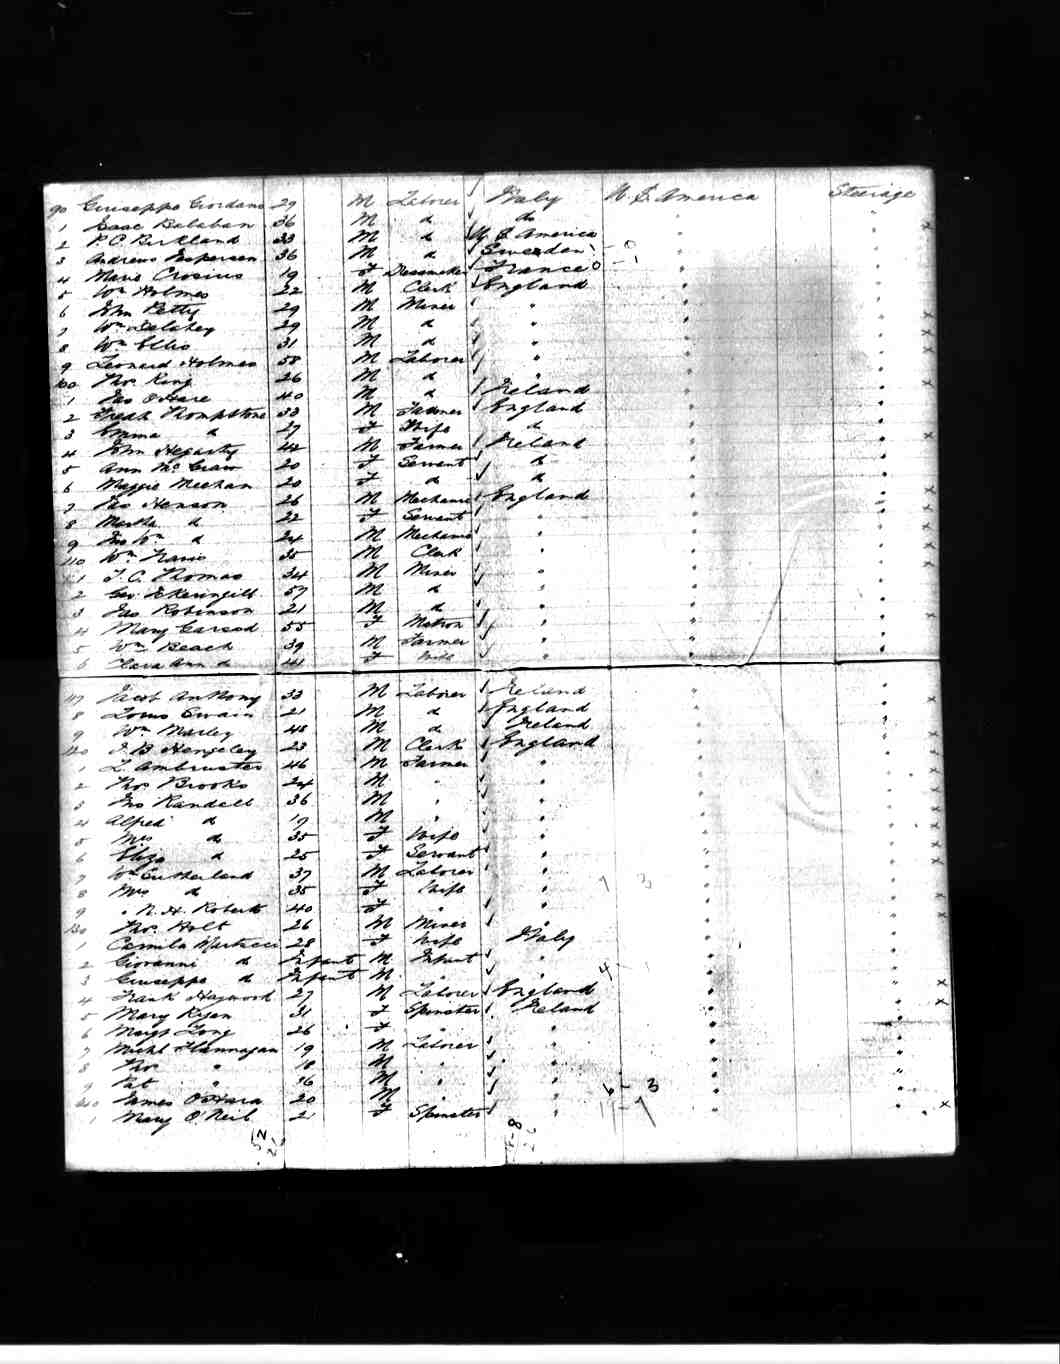 90 Giuseppe Giordano 29 M Laborer Italy U. S. America Steerage
1 Isaac Balaban 36 M d do "
2 P. C. Birkland 33 M d U. S. America "
3 Andrews Jespersen 36 M d Sweden "
4 Marie Crosius 19 F Dressmaker France "
5 Wm Holmes 22 M Clerk England "
6 John Petty 29 M Miner " "
7 Wm Delahey 29 M d " "
8 Wm Ellis 31 M d " "
9 Leonard Holmes 58 M Laborer " "
100 Thos King 26 M d " "
1 Jas O'Hare 40 M d Ireland "
2 Fredk Thompstone 33 M Farmer England "
3 Emma d 27 F Wife d "
4 John Hegarty 42 M Farmer Ireland "
5 Ann Mc Graw 20 F Servant d "
6 Maggie Meehan 20 F d d "
7 Jas Henson 26 M Mechanic England "
8 Martha d 22 F Servant " "
9 Jno Wm d 24 M Mechanic " "
110 Wm Travis 35 M Clerk " "
1 T. C. Thomas 34 M Miner " "
2 Geo. 57 M d " "
3 Jas Robinson 21 M d " "
4 Mary 55 F Matron " "
5 Wm Beach 39 M Farmer " "
6 Clara Ann d 41 F Wife " "
117 Jacob Anthony 33 M Laborer Ireland "
8 Louis Swain 21 M d England "
9 Wm Marley 48 M d Ireland "
120 J. B. Hengeley 23 M Clerk England "
1 L. Ambruster 46 M Farmer " "
2 Thos Brooks 24 M " " "
3 Jno Randell 36 M " " "
4 Alfred d 17 M " " "
5 Mrs d 35 F Wife " "
6 Eliza d 25 F Servant " "
7 Wm Sutherland 37 M Laborer " "
8 Mrs d 35 F Wife " "
9 " N. H. Roberts 40 F " " "
130 Thos. Holt 26 M Miner " "
1 Camila Martucci 28 F Wife Italy "
2 Giovanni d Infant M Infant " "
3 Giuseppe d Infant M " " "
4 Frank Haywood 27 M Laborer England "
5 Mary Ryan 31 F Spinster Ireland "
6 Margt Long 26 F " " "
7 Michl Flannagan 19 M Laborer " "
8 Thos " 18 M " " "
9 Pat " 16 M " " "
140 James O'Hara 20 M " " "
1 Mary O'Neil 21 F Spinster " "